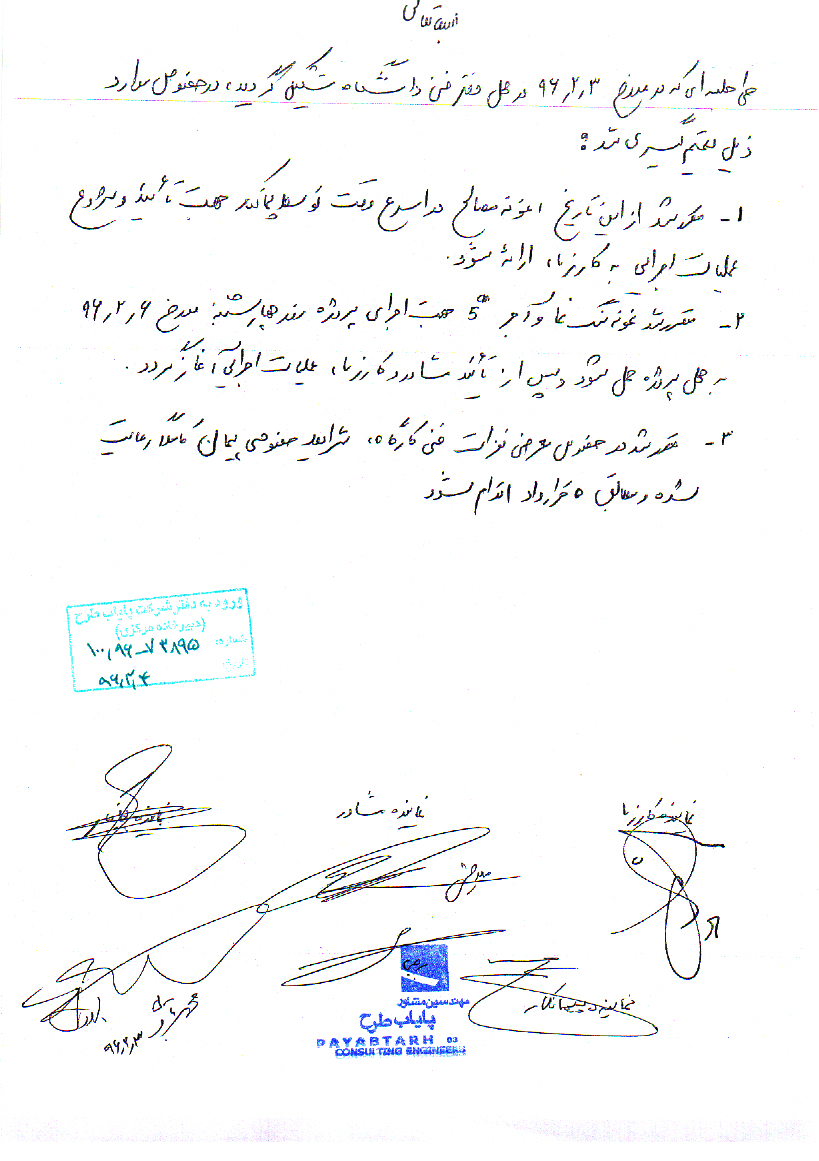 بسمه تعالی
طی جلسه ای که در مورخ ۹۶٫۲٫۳ در محل دفتر فنی دانشگاه تشکیل گردید، در خصوص موارد
ذیل تصمیم گیری شد:
۱- مقرر شد از این تاریخ، نمونه مصالح در اسرع وقت توسط پیمانکار جهت تأیید و شروع
عملیات اجرایی به کارفرما، ارائه شود.
۲- مقرر شد نمونه سنگ نما و آجر 5cm جهت اجرای پروژه روز چهارشنبه مورخ ۹۶٫۲٫۶
به محل پروژه حمل شود و پس از تأیید مشاور و کارفرما، عملیات اجرایی آغاز گردد.
۳- مقرر شد در خصوص معرفی نفرات فنی کارگاه، شرایط خصوصی پیمان کاملا رعایت
شده و مطابق قرارداد اقدام شود
ورود به دفتر شرکت پایاب طرح
(دبیرخانه مرکزی)
شماره: ۱۰۰٫۹۶-۷۳۸۹۵
تاریخ: ۹۶٫۲٫۴
نماینده کارفرما
نماینده مشاور
نماینده پیمانکار
مهندسین مشاور
پایاب طرح
PAYABTARH 03
CONSULTING ENGINEERS
۹۶٫۲٫۳